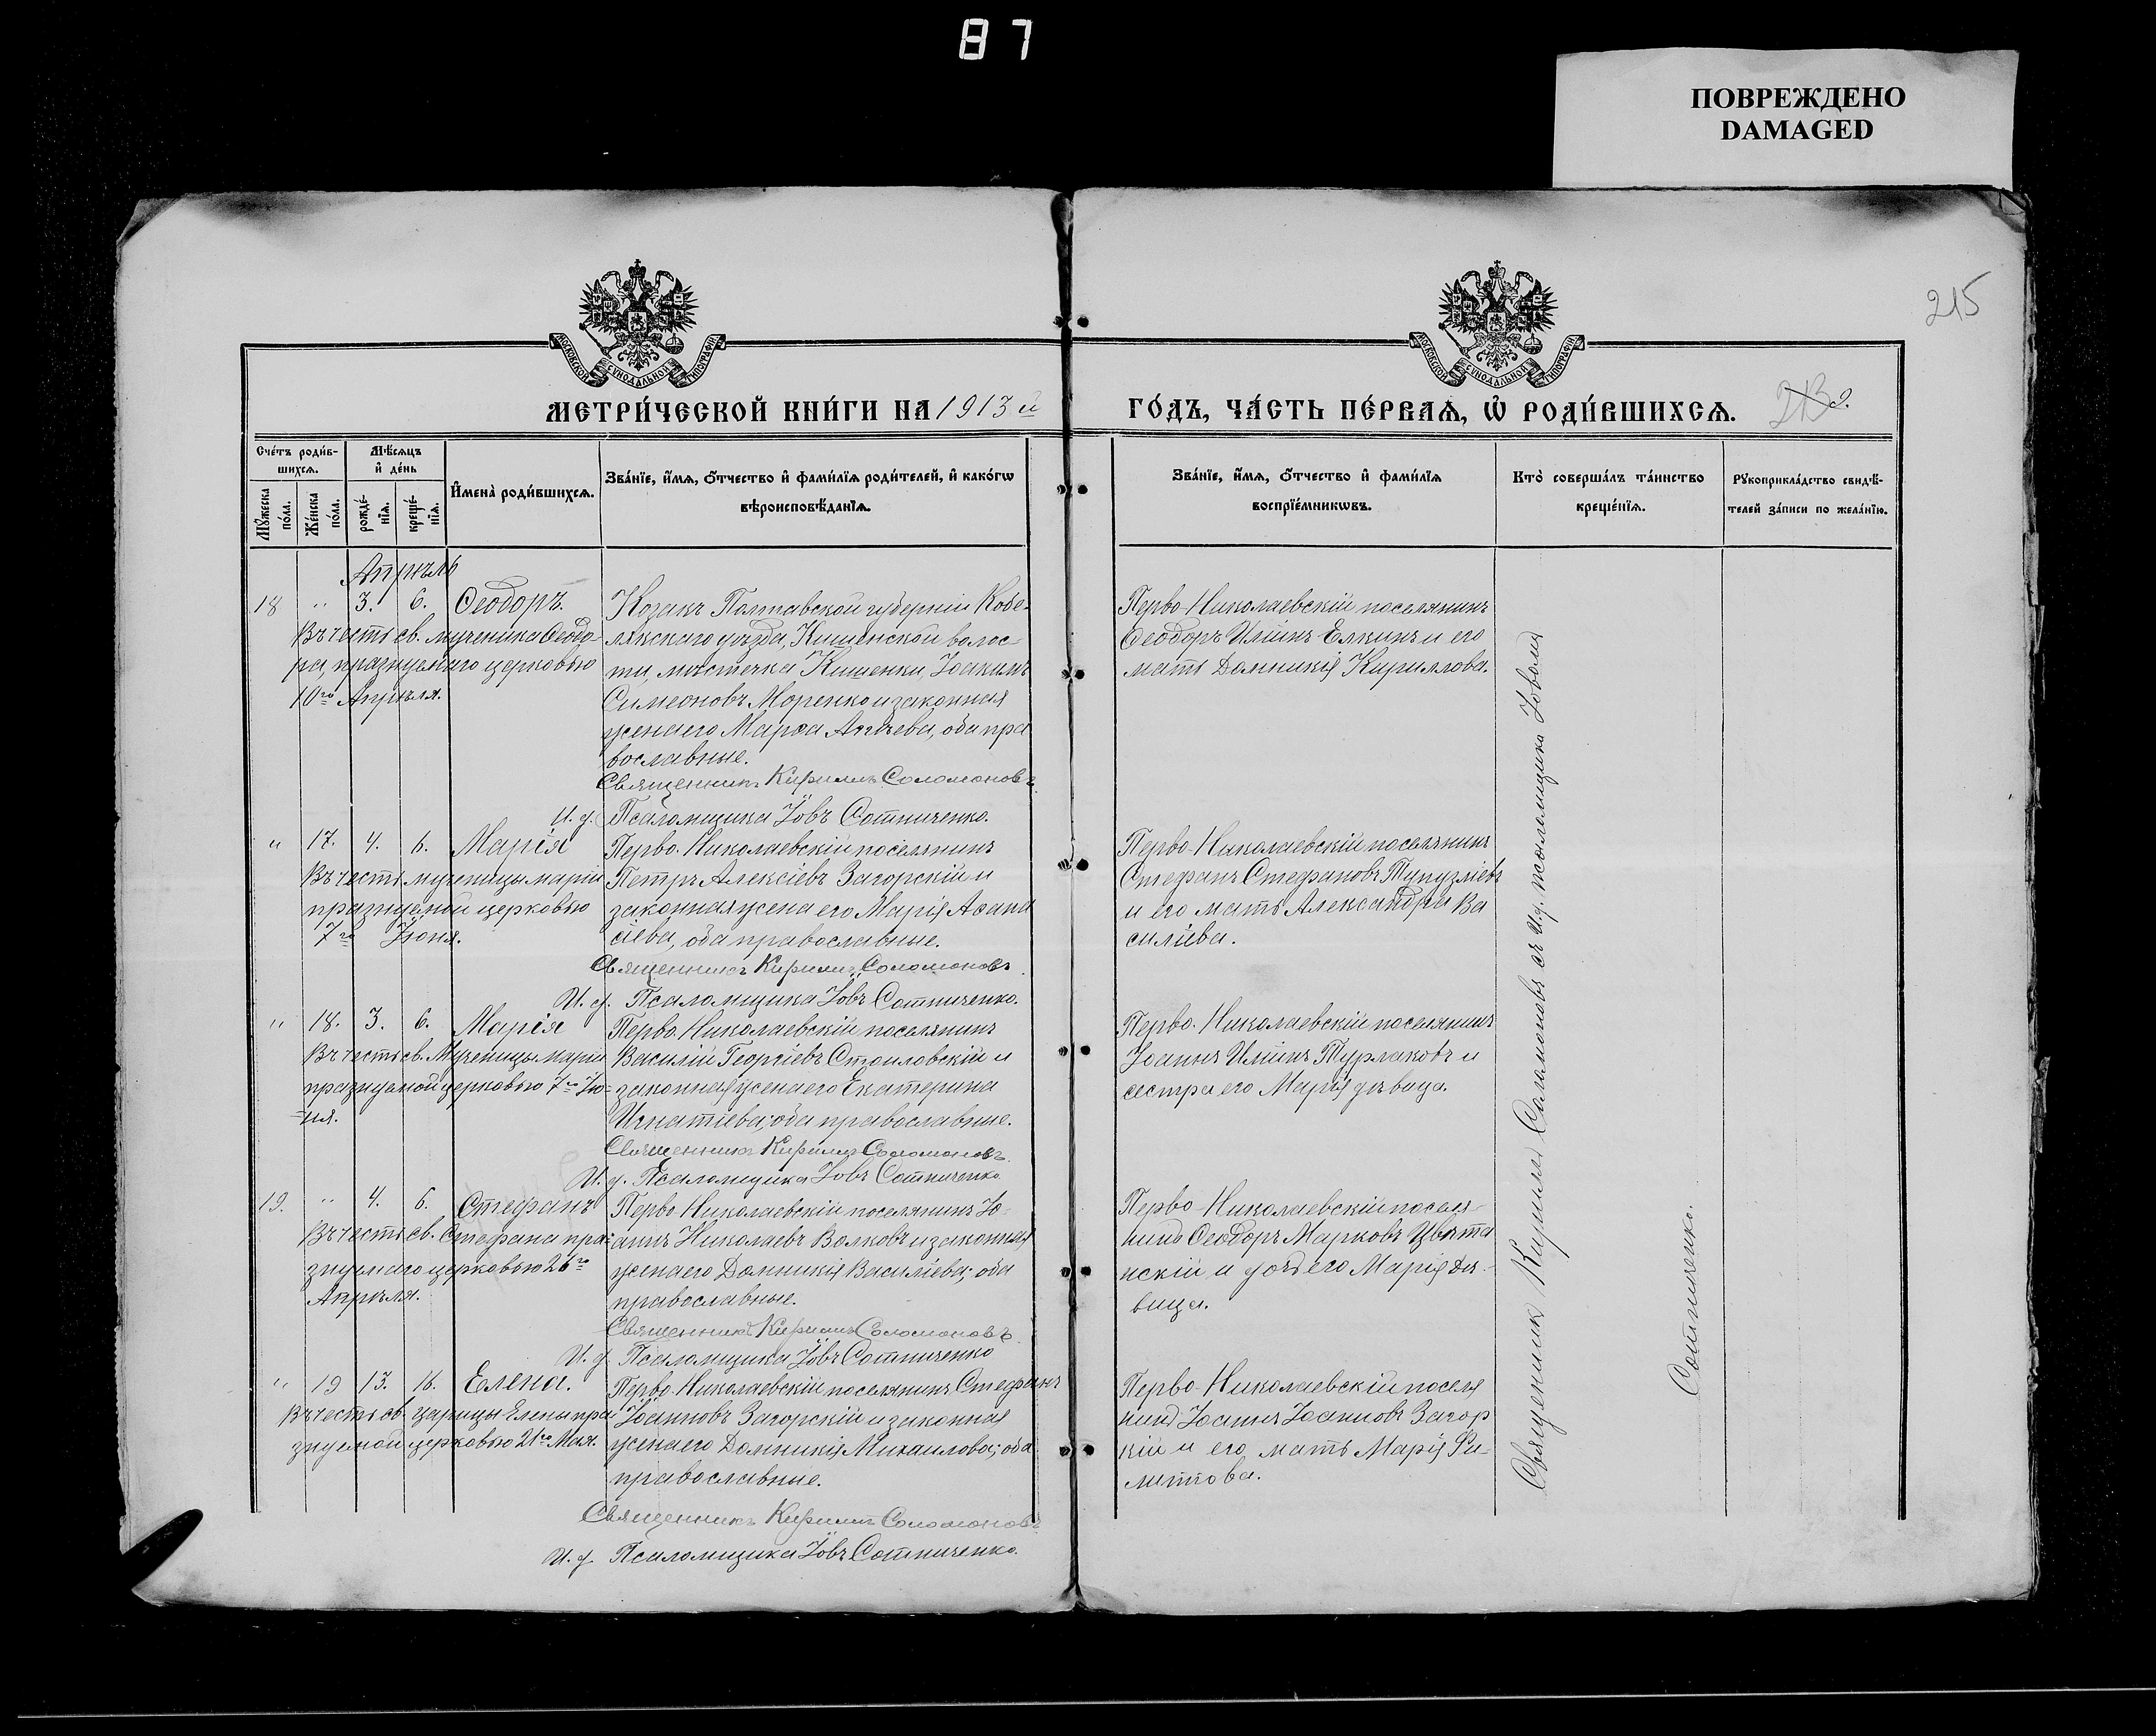 87
ПОВРЕЖДЕНО
DAMAGED
215
МОСКОВСКОЙ СѴНОДАЛЬНОЙ ТИПОГРАФІИ
МОСКОВСКОЙ СѴНОДАЛЬНОЙ ТИПОГРАФІИ
МЕТРИ́ЧЕСКОЙ КНИ́ГИ НА 1913 й
ГО́ДЪ, ЧА́СТЬ ПЕ́РВАѦ, Ѡ҆ РОДИ́ВШИХСѦ.
Сче́тъ роди́в-
шихсѧ.
Мꙋ́жеска
по́ла.
Же́нска
по́ла.
Мѣ́сѧцъ
и҆ де́нь
рожде́-
нїѧ.
креще́-
нїѧ.
И҆мена̀ роди́вшихсѧ.
Зва́нїе, и҆́мѧ, ѻ҆́тчество и҆ фами́лїѧ роди́телей, и҆ како́гѡ
вѣроисповѣ́данїѧ.
Зва́нїе, и҆́мѧ, ѻ҆́тчество и҆ фами́лїѧ
воспрїе́мникѡвъ.
Кто̀ соверша́лъ та́инство
креще́нїѧ.
Рꙋкоприкла́дство свидѣ́-
телей за́писи по жела́нїю.
Апрѣль
18 " 3. 6. Ѳеодоръ.
Въ честь св. мученика Ѳеодо-
ра, празнуемаго церковью
10го Апрѣля.
Козакъ Полтавской губерніи Кобе-
лякскаго уѣзда, Кишенской волос-
ти, мѣстечка Кишенки, Іоакимъ
Симеоновъ Моренко и законная
жена его Марѳа Авдѣева, оба пра
вославные.
Священникъ Кириллъ Соломоновъ
И. д. Псаломщика Іовъ Сотниченко.
Перво-Николаевскій поселянинъ
Ѳеодоръ Иліинъ Елкинъ и его
мать Домникія Кириллова.
" 17. 4. 6. Марія
Въ честь мученицы Маріи
празнуемой церковью
7го Іюня.
Перво-Николаевскій поселянинъ
Петръ Алексіевъ Загорскій и
законная жена его Марія Аѳана
сіева, оба православные.
Священникъ Кириллъ Соломоновъ
И. д. Псаломщика Іовъ Сотниченко.
Перво-Николаевскій поселянинъ
Стефанъ Стефановъ Тупузліевъ
и его мать Александра Ва
силіева.
" 18. 3. 6. Марія
Въ честь св. Мученицы Маріи
празнуемой церковью 7го Ію-
ня.
Перво-Николаевскій поселянинъ
Василій Георгіевъ Стоиловскій и
законная жена его Екатерина
Игнатіева; оба православные.
Священникъ Кириллъ Соломоновъ
И. д. Псаломщика Іовъ Сотниченко
Перво-Николаевскій поселянинъ
Іоаннъ Иліинъ Турлаковъ и
сестра его Марія дѣвица.
19. " 4. 6. Стефанъ
Въ честь св. Стефана пра-
знуемаго церковью 26го
Апрѣля.
Перво-Николаевскій поселянинъ Іо-
аннъ Николаевъ Волковъ и законная
жена его Домникія Василіева; оба
православные.
Священникъ Кириллъ Соломоновъ
И. д. Псаломщика Іовъ Сотниченко
Перво-Николаевскій поселя-
нинъ Ѳеодоръ Марковъ Цвѣта
нскій и дочь его Марія дѣ-
вица.
" 19 13. 16. Елена.
Въ честь св. Царицы Елены пра
знуемой церковью 21го Мая.
Перво-Николаевскій поселянинъ Стефанъ
Іоанновъ Загорскій и законная
жена его Домникія Михаилова; оба
православные.
Священникъ Кириллъ Соломоновъ
И. д. Псаломщика Іовъ Сотниченко.
Перво-Николаевскій поселя
нинъ Іоаннъ Іоанновъ Загор
кій и его мать Марія
Священник Кирилл Соломоновъ съ И. д. псаломщика Іовомъ
Сотниченко.